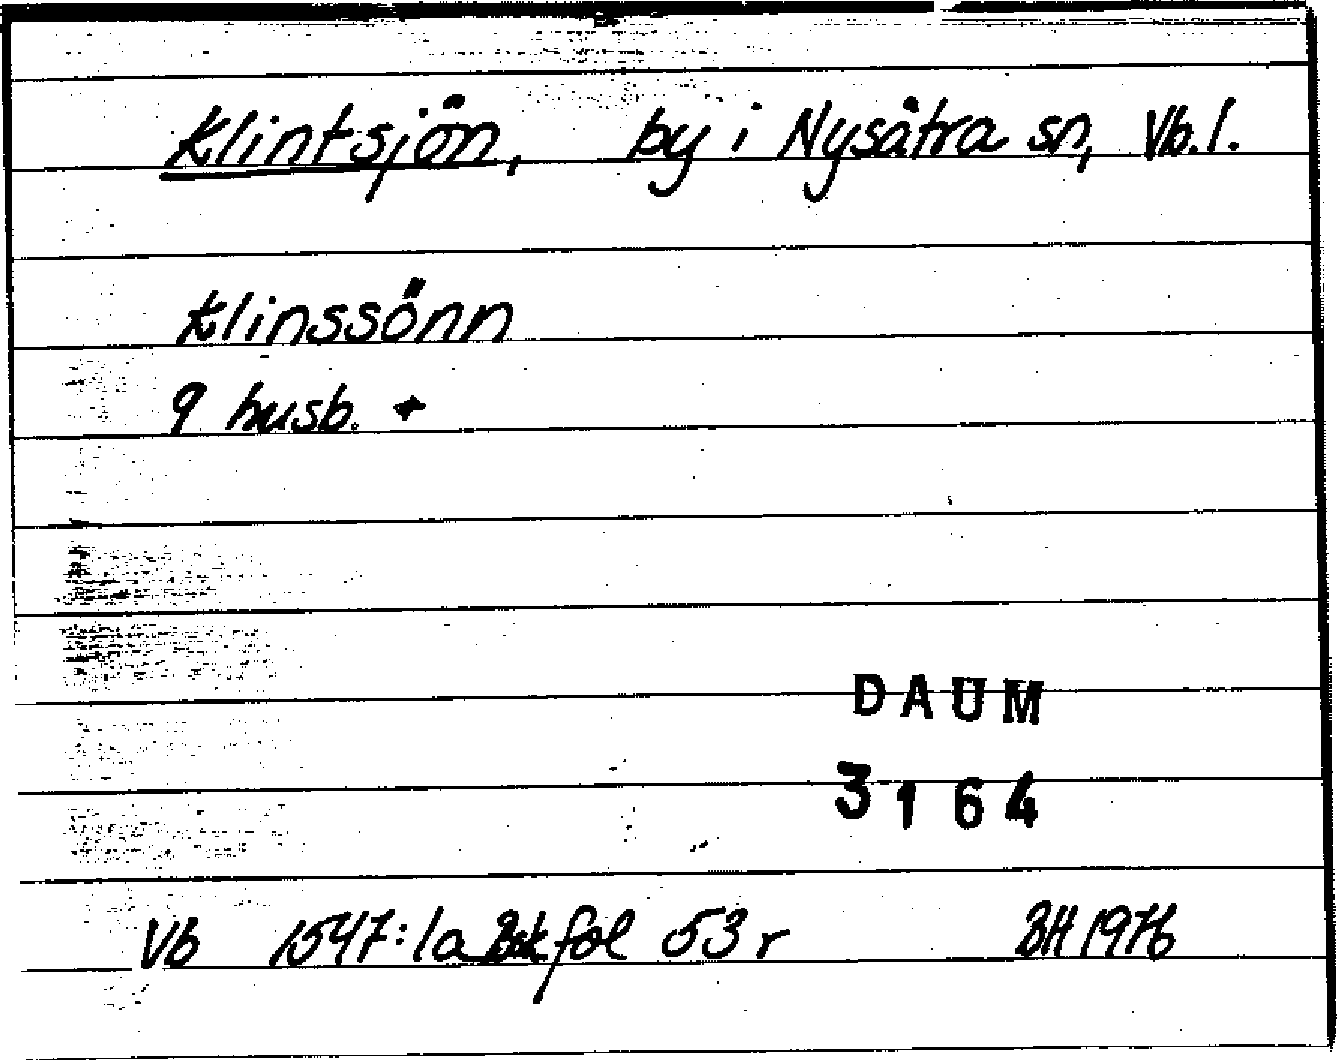 Klintsjön, by i Nysätra sn, Vb. l.
Klinssönn
9 husb. +
DAUM
3164
Vb 1547:1a Bsk fol 53 r BH 1976